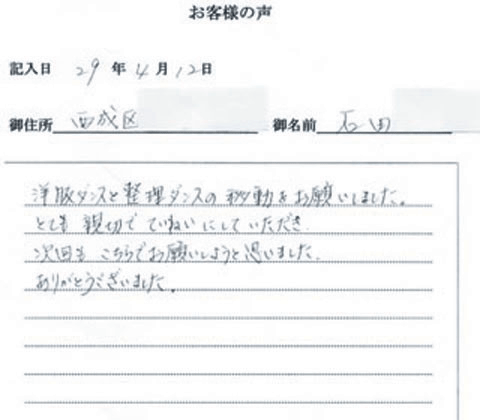 お客様の声
記入日 29年4月12日
御住所 西成区 御名前 石田
洋服ダンスと整理ダンスの移動をお願いしました。
とても親切でていねいにしていただき
次回もこちらでお願いしようと思いました。
ありがとうございました。